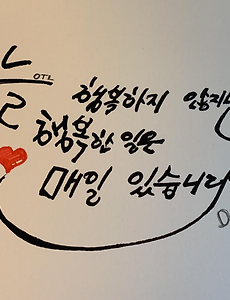 늘
OTL
행복하지 않지만
행복한 일은
매일 있습니다